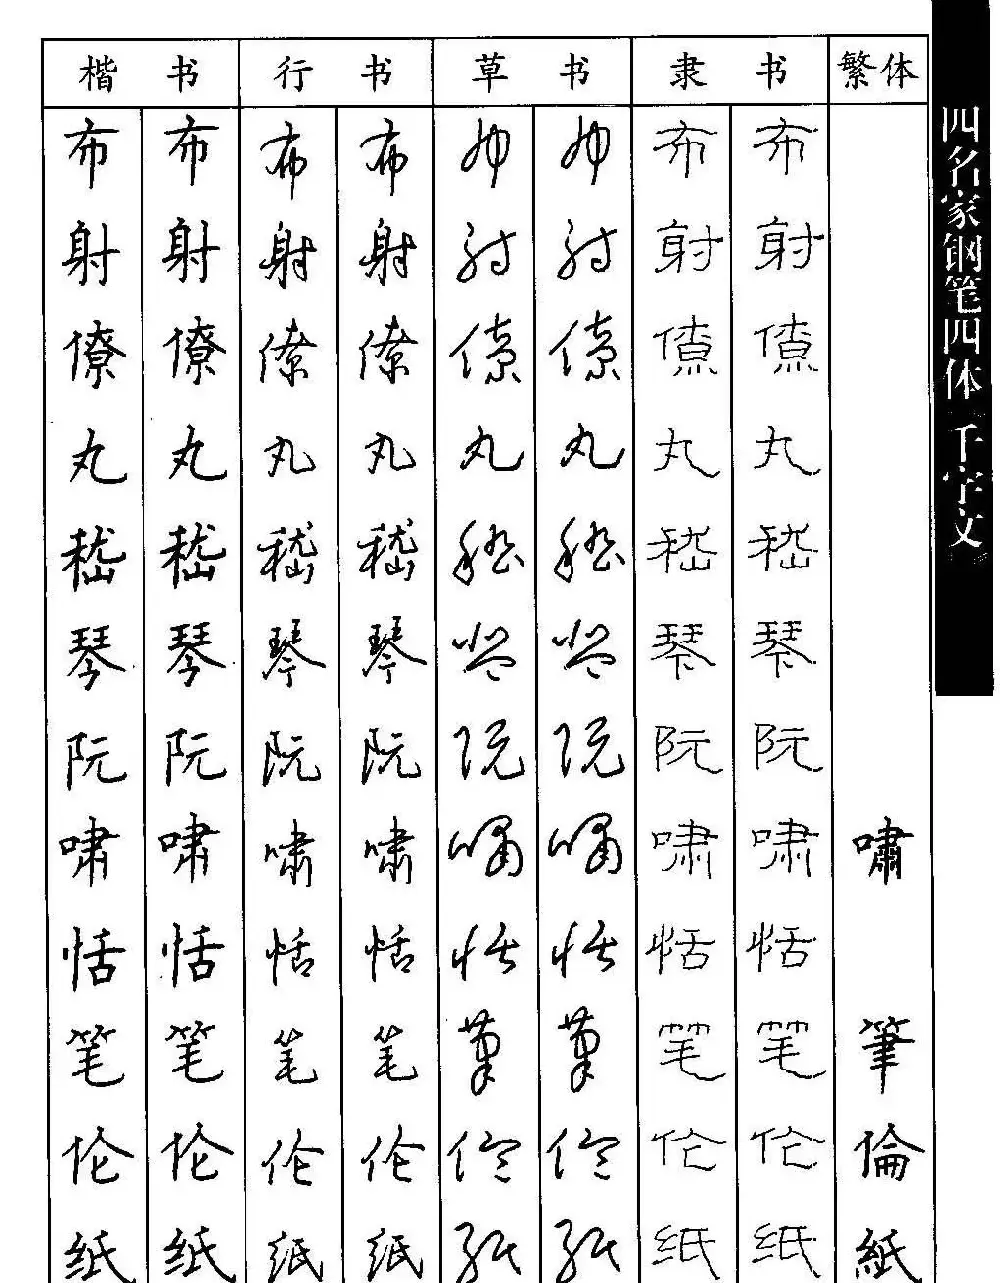 楷书 行书 草书 隶书 繁体
布 布 布 布 布 布 布 布
射 射 射 射 射 射 射 射
僚 僚 僚 僚 僚 僚 僚 僚
丸 丸 丸 丸 丸 丸 丸 丸
嵇 嵇 嵇 嵇 嵇 嵇 嵇 嵇
琴 琴 琴 琴 琴 琴 琴 琴
阮 阮 阮 阮 阮 阮 阮 阮
啸 啸 啸 啸 啸 啸 啸 啸 嘯
恬 恬 恬 恬 恬 恬 恬 恬
笔 笔 笔 笔 筆 筆 笔 笔 筆
伦 伦 伦 伦 伦 伦 伦 伦 倫
纸 纸 纸 纸 纸 纸 纸 纸 紙
四名家钢笔四体千字文